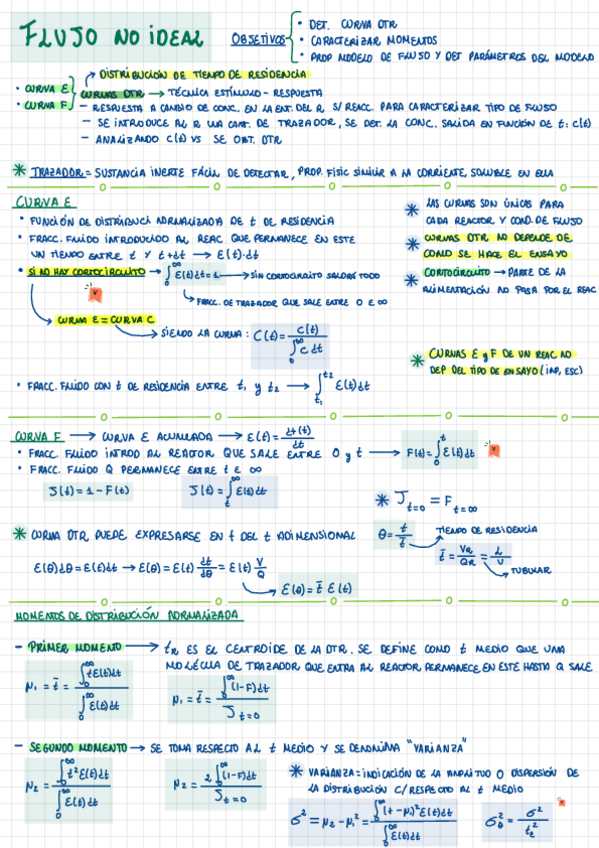 FLUJO NO IDEAL
OBJETIVOS
• DET. CURVA DTR
• CARACTERIZAR MOMENTOS
• PROP MODELO DE FLUJO Y DET PARÁMETROS DEL MODELO
• CURVA E
• CURVA F
CURVAS DTR
→ DISTRIBUCIÓN DE TIEMPO DE RESIDENCIA
→ TÉCNICA ESTÍMULO - RESPUESTA
- RESPUESTA A CAMBIO DE CONC. EN LA ENT. DEL R S/ REACC. PARA CARACTERIZAR TIPO DE FLUJO
- SE INTRODUCE AL R UNA CANT. DE TRAZADOR, SE DET. LA CONC. SALIDA EN FUNCIÓN DE t: C(t)
- ANALIZANDO C(t) VS SE OBT. DTR
* TRAZADOR = SUSTANCIA INERTE FÁCIL DE DETECTAR, PROP. FISIC SIMILAR A LA CORRIENTE, SOLUBLE EN ELLA
CURVA E
• FUNCIÓN DE DISTRIBUCI NORMALIZADA DE t DE RESIDENCIA
• FRACC. FLUIDO INTRODUCIDO AL REAC QUE PERMANECE EN ESTE
UN TIEMPO ENTRE t Y t+dt → E(t)·dt
• SI NO HAY CORTOCIRCUITO → ∫₀^∞ E(t)dt = 1 → SIN CORTOCIRCUITO SALDRÁ TODO
→ FRACC. DE TRAZADOR QUE SALE ENTRE 0 E ∞
→ CURVA E = CURVA C
→ SIENDO LA CURVA: C(t) = C(t) / ∫₀^∞ C dt
• FRACC. FLUIDO CON t DE RESIDENCIA ENTRE t₁ y t₂ → ∫_t₁^t₂ E(t)dt
* LAS CURVAS SON ÚNICAS PARA
CADA REACTOR Y COND. DE FLUJO
* CURVAS DTR NO DEPENDE DE
COMO SE HACE EL ENSAYO
* CORTOCIRCUITO → PARTE DE LA
ALIMENTACIÓN NO PASA POR EL REAC
* CURVAS E y F DE UN REAC NO
DEP DEL TIPO DE ENSAYO (IMP, ESC)
CURVA F → CURVA E ACUMULADA → E(t) = dF(t)/dt
• FRACC FLUIDO INTROD AL REACTOR QUE SALE ENTRE 0 y t → F(t) = ∫₀^t E(t)dt
• FRACC. FLUIDO Q PERMANECE ENTRE t E ∞
J(t) = 1 - F(t)
J(t) = ∫_t^∞ E(t)dt
* J t=0 = F t=∞
* CURVA DTR PUEDE EXPRESARSE EN f DEL t ADIMENSIONAL
θ = t/t̄ → TIEMPO DE RESIDENCIA
t̄ = VR/QR = L/U → TUBULAR
E(θ)dθ = E(t)dt → E(θ) = E(t) dt/dθ = E(t) V/Q
→ E(θ) = t̄ E(t)
MOMENTOS DE DISTRIBUCIÓN NORMALIZADA
- PRIMER MOMENTO → tR ES EL CENTROIDE DE LA DTR. SE DEFINE COMO t MEDIO QUE UNA
MOLÉCULA DE TRAZADOR QUE ENTRA AL REACTOR PERMANECE EN ESTE HASTA Q SALE
μ₁ = t̄ = ∫₀^∞ tE(t)dt / ∫₀^∞ E(t)dt
μ₁ = t̄ = ∫₀^∞ (1-F)dt / J t=0
- SEGUNDO MOMENTO → SE TOMA RESPECTO AL t MEDIO Y SE DENOMINA "VARIANZA"
μ₂ = ∫₀^∞ t²E(t)dt / ∫₀^∞ E(t)dt
μ₂ = 2∫₀^∞ (1-F)dt / J t=0
* VARIANZA = INDICACIÓN DE LA AMPLITUD O DISPERSIÓN DE
LA DISTRIBUCIÓN C/RESPECTO AL t MEDIO
σ² = μ₂ - μ₁² = ∫₀^∞ (t-μ₁)²E(t)dt / ∫₀^∞ E(t)dt